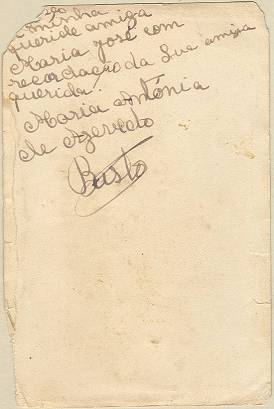 minha
queride amiga
Maria José com
recordação da Sua amiga
querida
Maria Antónia
de Azevedo
Basto